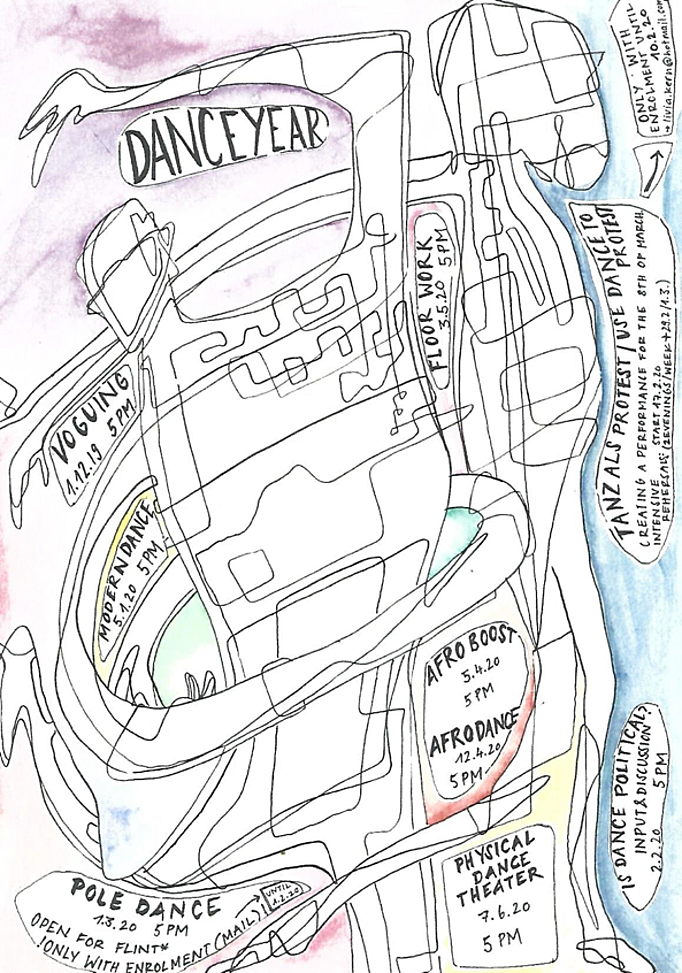 DANCEYEAR
ONLY WITH
ENROLMENT UNTIL
10.2.20
→livia.kern@hotmail.com
TANZ ALS PROTEST / USE DANCE TO
PROTEST
CREATING A PERFORMANCE FOR THE 8TH OF MARCH
INTENSIVE START 17.2.20
REHERSALS (2EVENINGS/WEEK+29.2/1.3.)
FLOOR WORK
3.5.20 5PM
VOGUING
1.12.19 5PM
MODERN DANCE
5.1.20 5PM
AFRO BOOST
3.4.20
5PM
AFRODANCE
12.4.20
5PM
IS DANCE POLITICAL?
INPUT&DISCUSSION
2.2.20 5PM
PHYSICAL
DANCE
THEATER
7.6.20
5PM
POLE DANCE
1.3.20 5PM
OPEN FOR FLINT*
!ONLY WITH ENROLMENT (MAIL)!
UNTIL
1.2.20